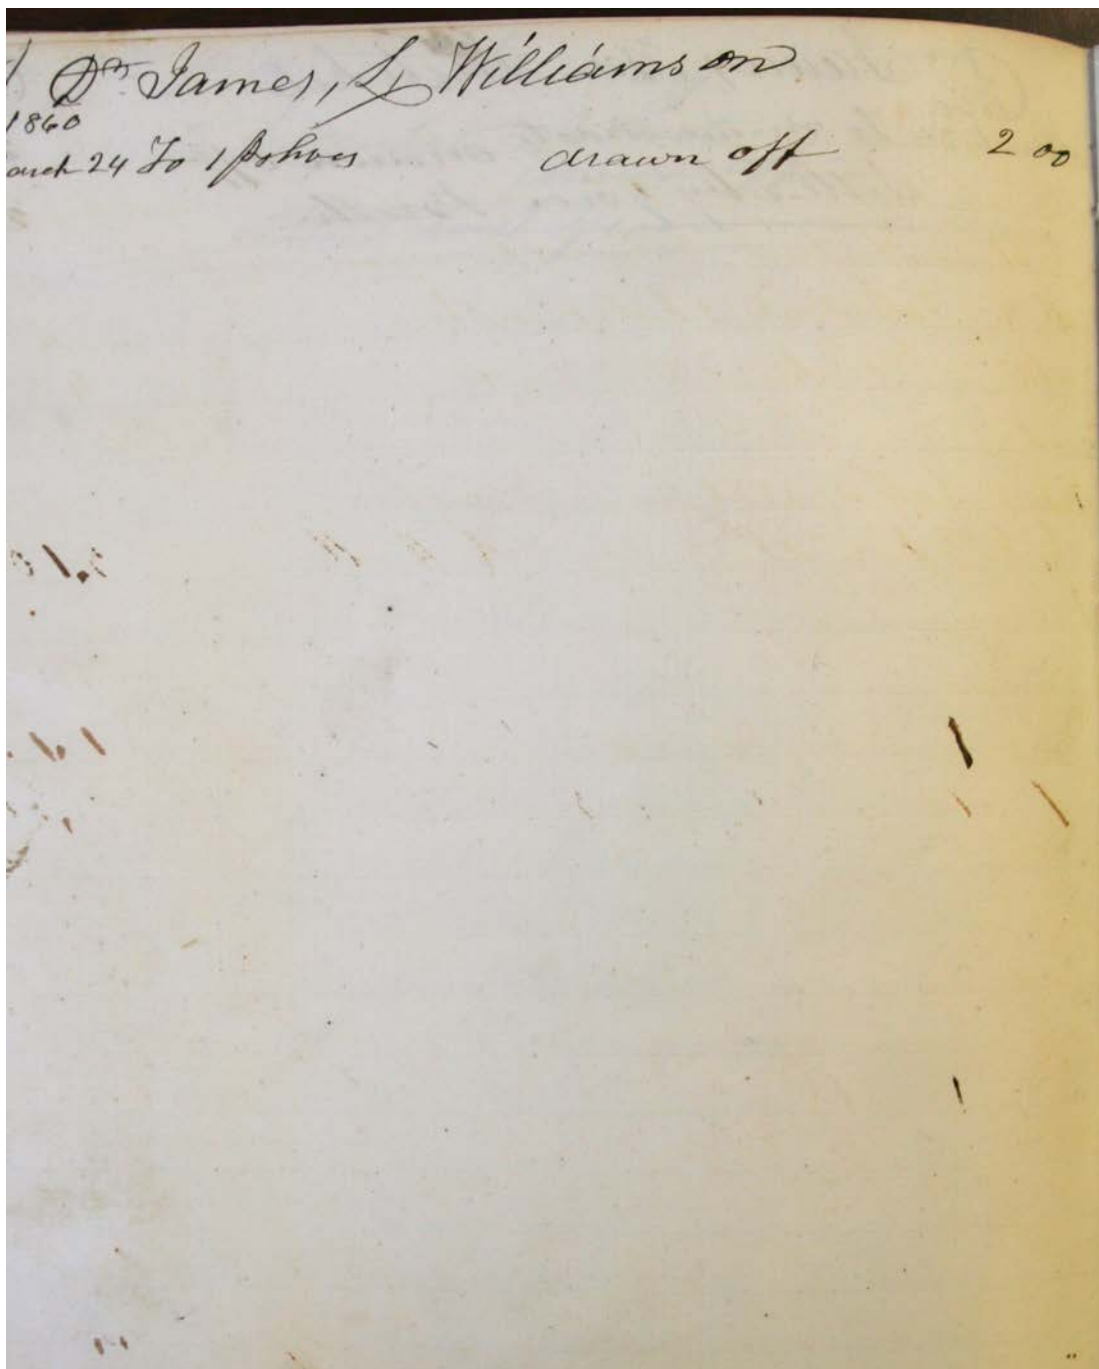 Dr James, L, Williamson
1860
arch 24 To 1 Pr shoes drawn off 2 00